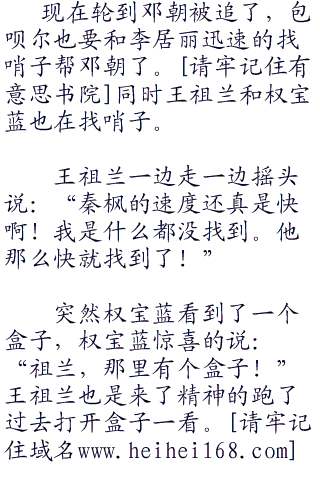 现在轮到邓朝被追了，包
呗尔也要和李居丽迅速的找
哨子帮邓朝了。[请牢记住有
意思书院]同时王祖兰和权宝
蓝也在找哨子。
王祖兰一边走一边摇头
说：“秦枫的速度还真是快
啊！我是什么都没找到。他
那么快就找到了！”
突然权宝蓝看到了一个
盒子，权宝蓝惊喜的说：
“祖兰，那里有个盒子！”
王祖兰也是来了精神的跑了
过去打开盒子一看。[请牢记
住域名www.heihei168.com]